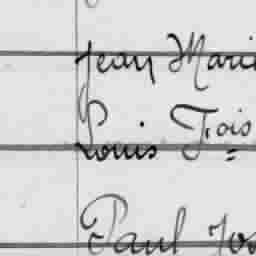 Jean Marie
Louis Fois
Paul Jos